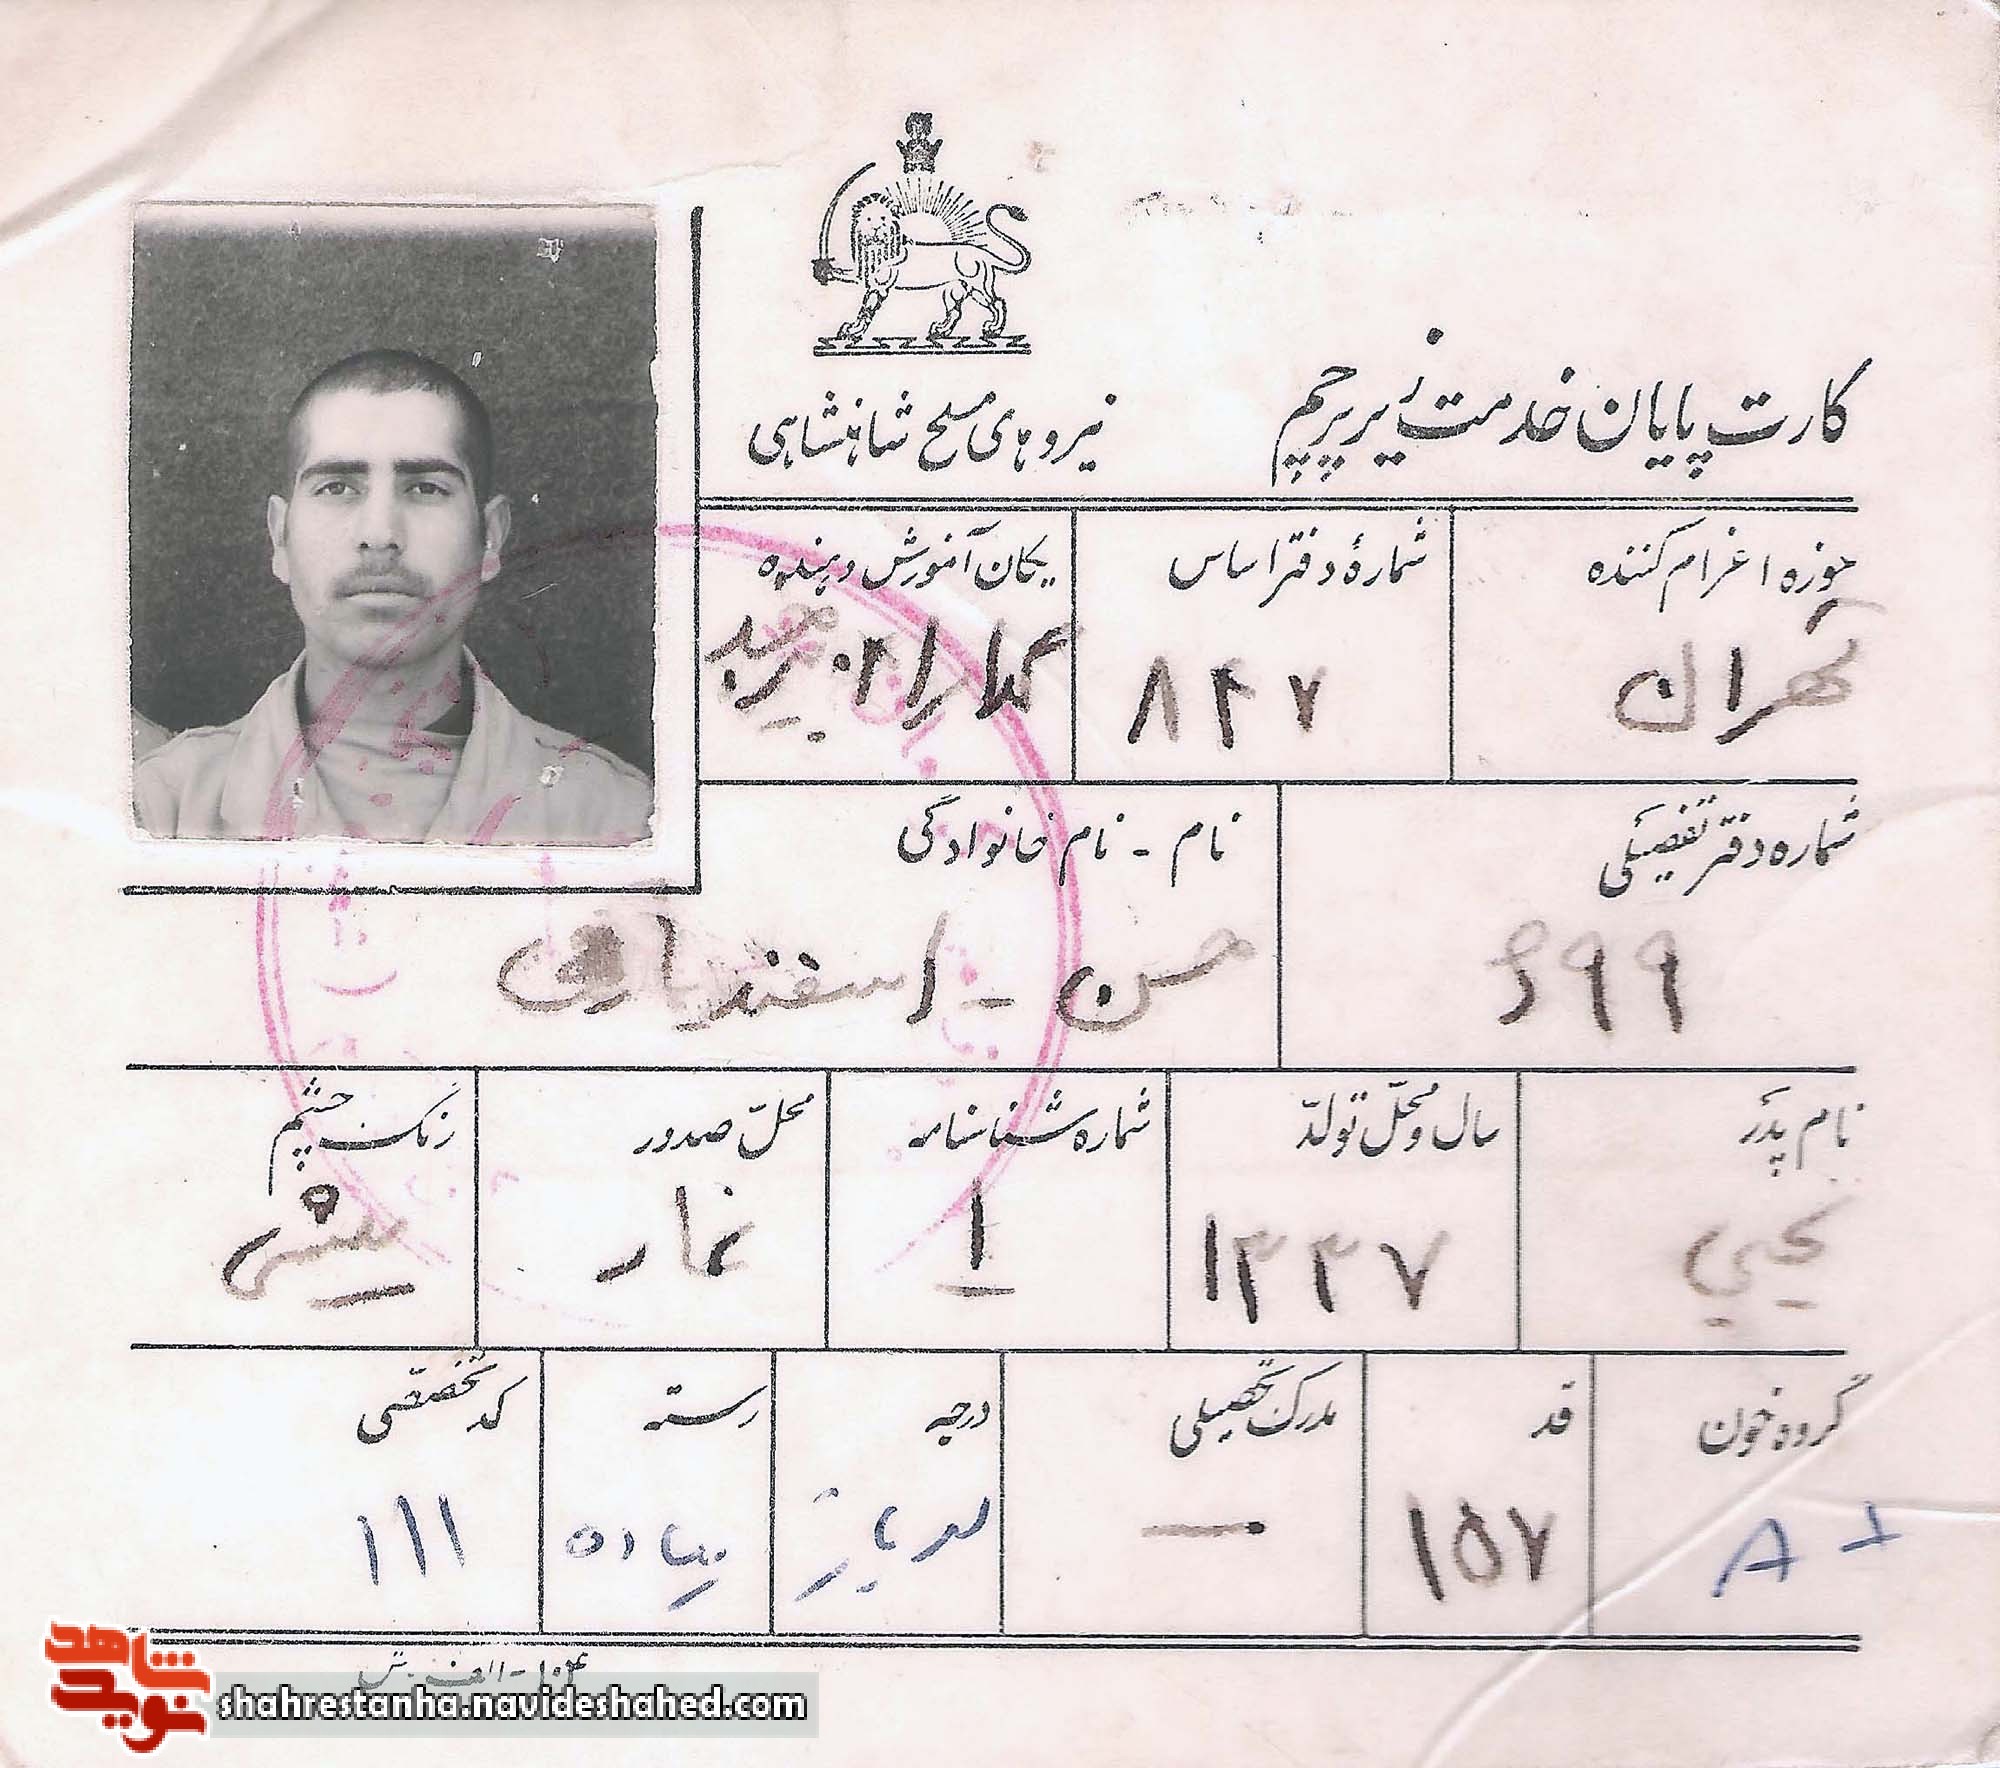 کارت پایان خدمت زیر پرچم
نیروهای مسلح شاهنشاهی
حوزه اعزام کننده
شمارهٔ دفتر اساس
یکان آموزش دهنده
تهران
۸۴۷
شماره دفتر تفصیلی
نام - نام خانوادگی
۶۹۹
حسن - اسفندیاری
نام پدر
سال و محلّ تولدّ
شماره شناسنامه
محلّ صدور
رنگ چشم
یحیی
۱۳۳۷
۱
نمار
میشی
گروه خون
قد
مدرک تحصیلی
درجه
رسته
کد تخصصی
A+
۱۵۷
—
سرباز
پیاده
۱۱۱
۱۰۴-الف-ش
شاهد
نوید
shahrestanha.navideshahed.com